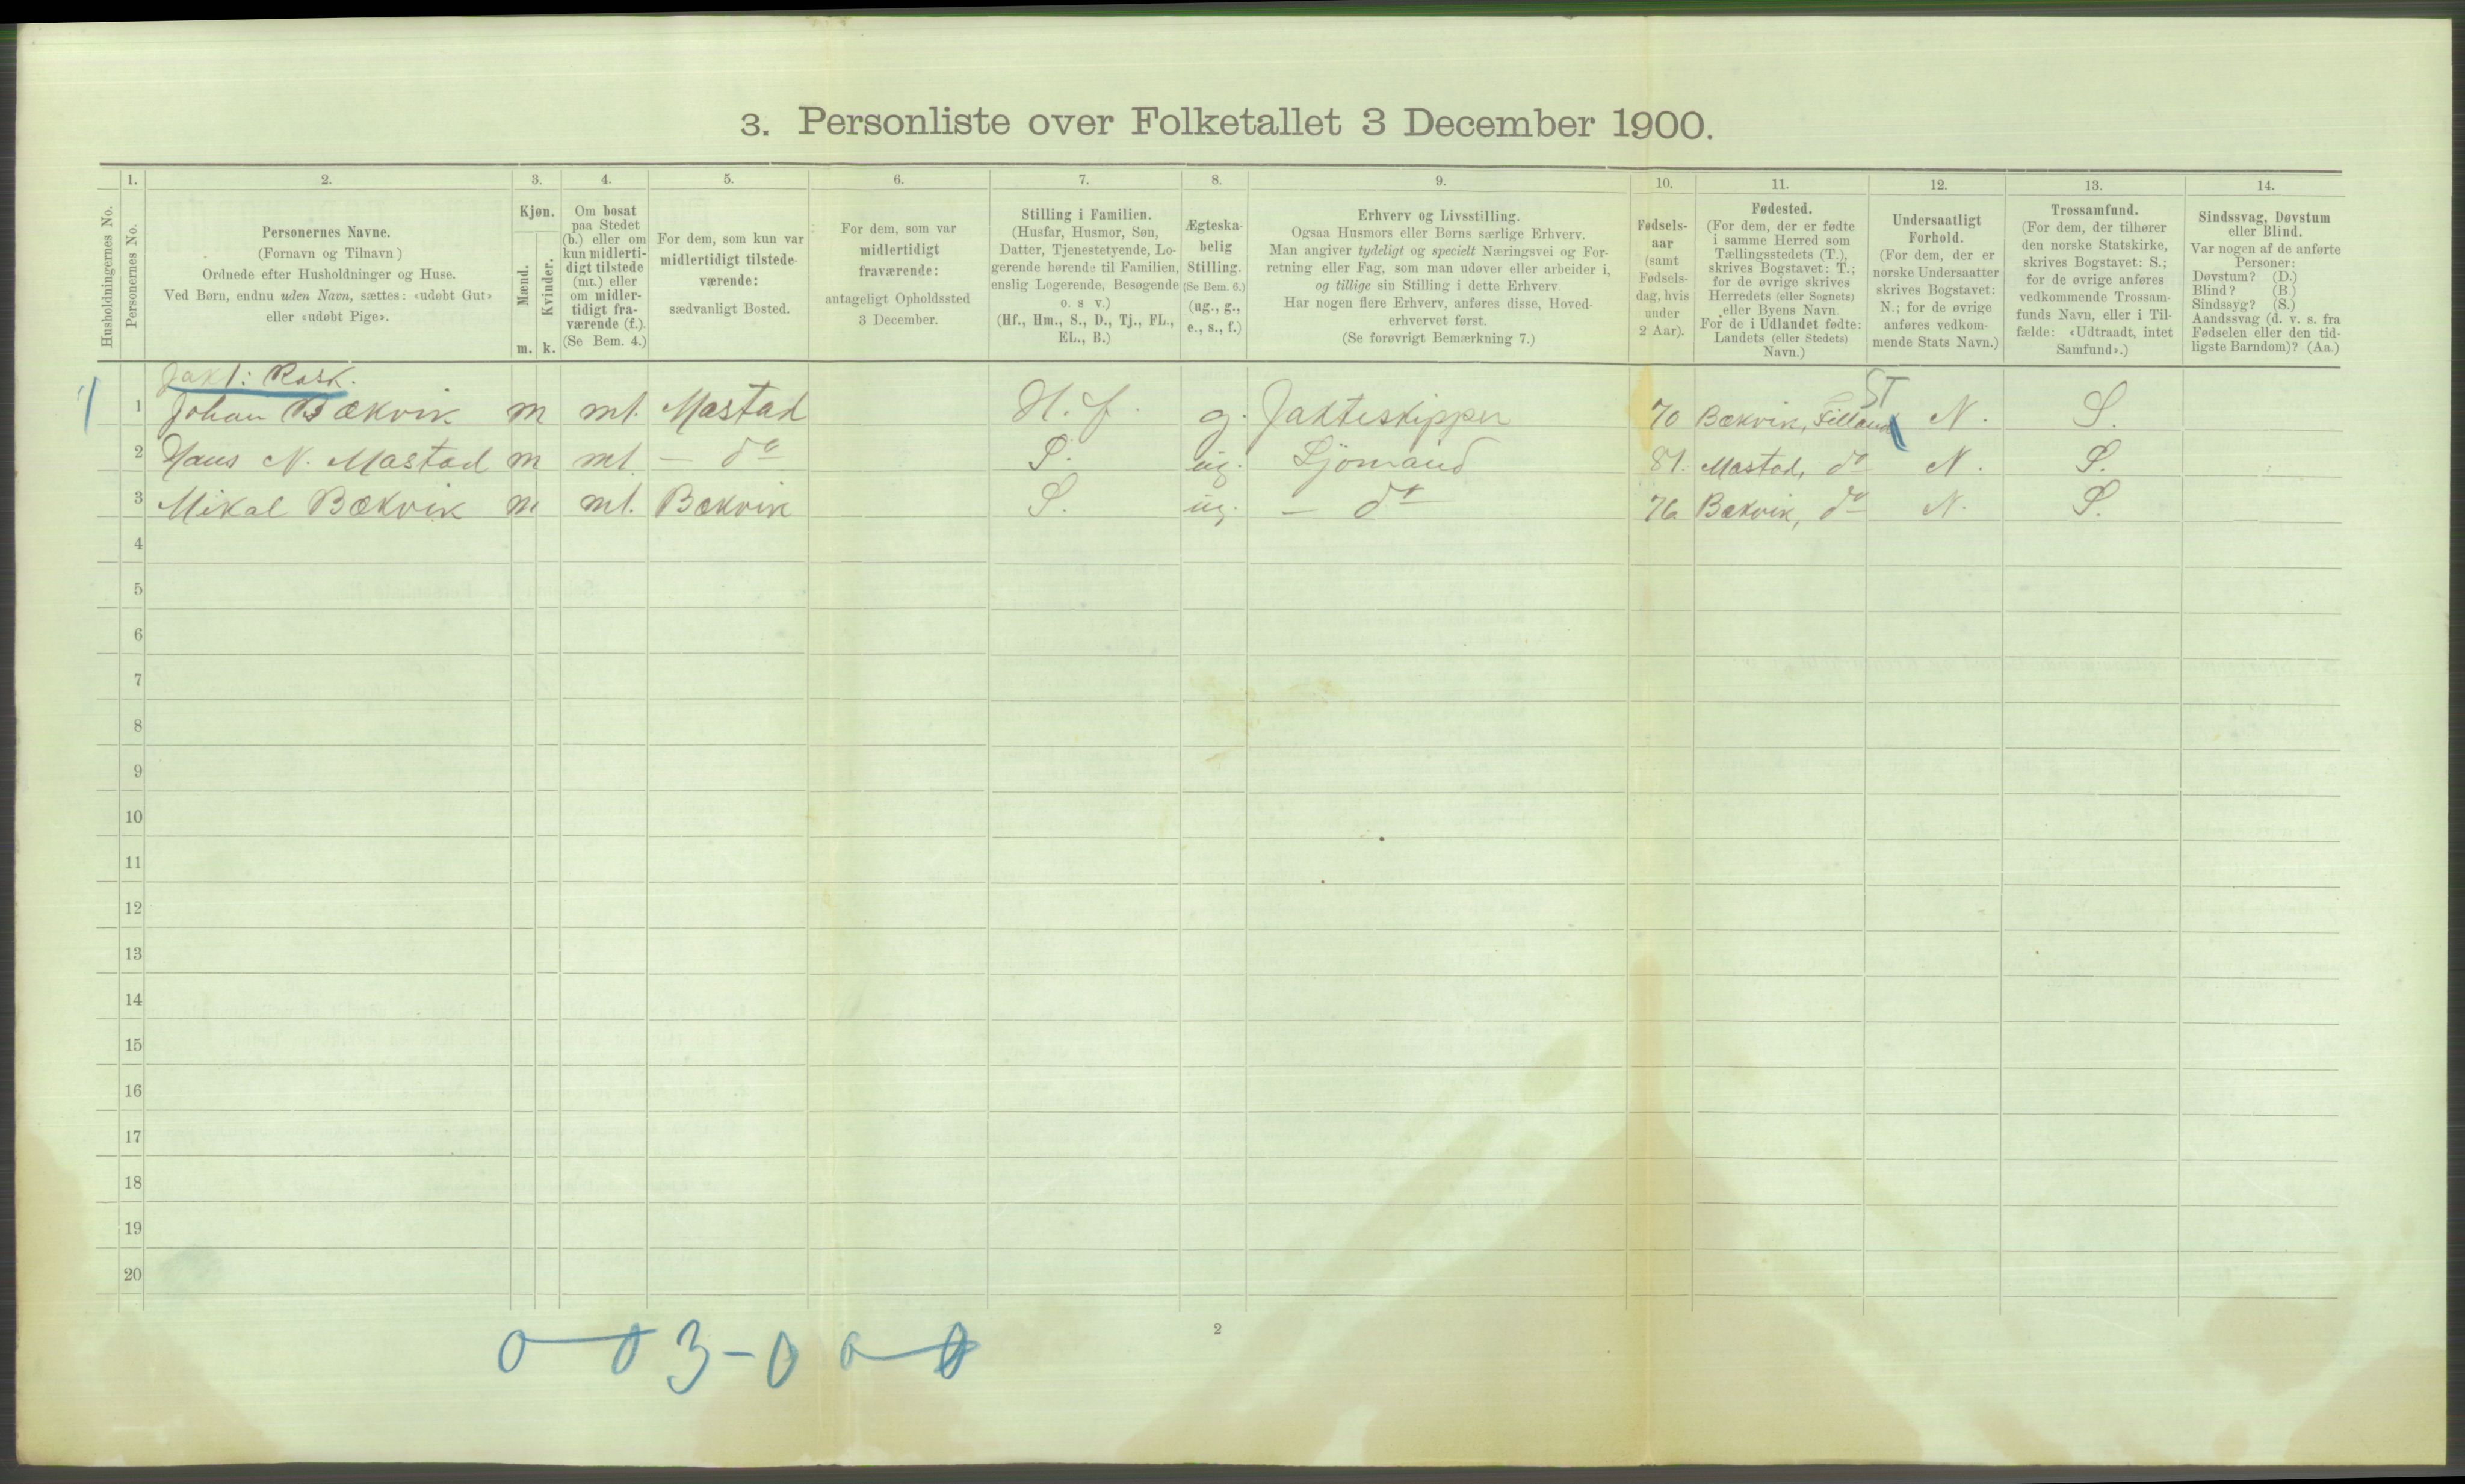 3. Personliste over Folketallet 3 December 1900.
1. 2. 3. 4. 5. 6. 7. 8. 9. 10. 11. 12. 13. 14.
Husholdningernes No.
Personernes No.
Personernes Navne.
(Fornavn og Tilnavn)
Ordnede efter Husholdninger og Huse.
Ved Børn, endnu uden Navn, sættes: «udøbt Gut»
eller «udøbt Pige».
Kjøn.
Mænd.
Kvinder.
m. k.
Om bosat
paa Stedet
(b.) eller om
kun midlerti-
digt tilstede
(mt.) eller
om midler-
tidigt fra-
værende (f.).
(Se Bem. 4.)
For dem, som kun var
midlertidigt tilstede-
værende:
sædvanligt Bosted.
For dem, som var
midlertidigt
fraværende:
antageligt Opholdssted
3 December.
Stilling i Familien.
(Husfar, Husmor, Søn,
Datter, Tjenestetyende, Lo-
gerende hørende til Familien,
enslig Logerende, Besøgende
o. s v.)
(Hf., Hm., S., D., Tj., FL.,
EL., B.)
Ægteska-
belig
Stilling.
(Se Bem. 6.)
(ug., g.,
e., s., f.)
Erhverv og Livsstilling.
Ogsaa Husmors eller Børns særlige Erhverv.
Man angiver tydeligt og specielt Næringsvei og For-
retning eller Fag, som man udøver eller arbeider i,
og tillige sin Stilling i dette Erhverv
Har nogen flere Erhverv, anføres disse, Hoved-
erhvervet først.
(Se forøvrigt Bemærkning 7.)
Fødsels-
aar
(samt
Fødsels-
dag, hvis
under
2 Aar).
Fødested.
(For dem, der er fødte
i samme Herred som
Tællingsstedets (T.),
skrives Bogstavet: T.;
for de øvrige skrives
Herredets (eller Sognets)
eller Byens Navn
For de i Udlandet fødte:
Landets (eller Stedets)
Navn.)
Undersaatligt
Forhold.
(For dem, der er
norske Undersaatter
skrives Bogstavet:
N.; for de øvrige
anføres vedkom-
mende Stats Navn.)
Trossamfund.
(For dem, der tilhører
den norske Statskirke,
skrives Bogstavet: S.;
for de øvrige anføres
vedkommende Trossam-
funds Navn, eller i Til-
fælde: «Udtraadt, intet
Samfund».)
Sindssvag, Døvstum
eller Blind.
Var nogen af de anførte
Personer:
Døvstum? (D.)
Blind? (B.)
Sindssyg? (S.)
Aandssvag (d. v. s. fra
Fødselen eller den tid-
ligste Barndom)? (Aa.)
Jakt: Rask.
ST
1 1 Johan Bækvik m mt. Mastad H. f. g. Jakteskipper 70 Bækvik, Filland N. S.
2 Hans N. Mastad m mt. — do S. ug. Sjömand 81. Mastad, do N. S.
3 Mikal Bækvik m mt. Bækvik S. ug. — do 76 Bækvik, do N. S.
4
5
6
7
8
9
10
11
12
13
14
15
16
17
18
19
20
2
0—0 3-0 0—0